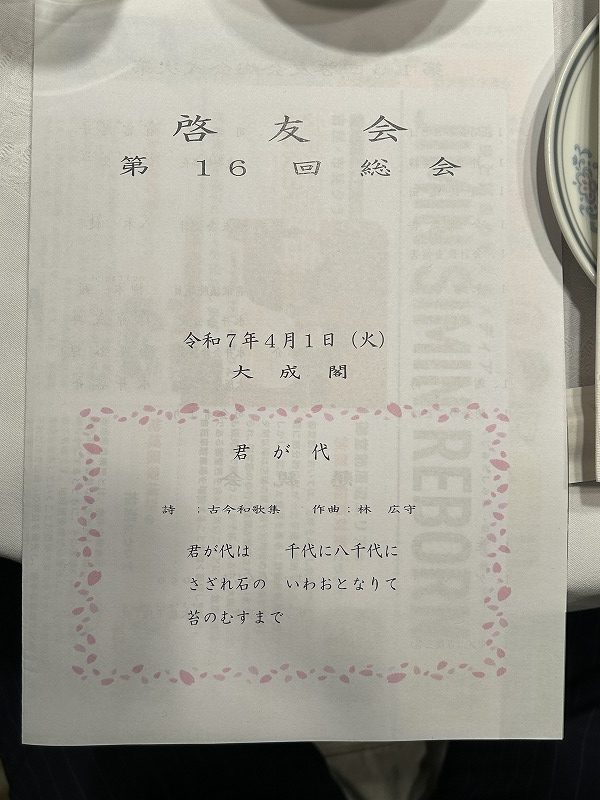 啓友会
第 16 回総 会
令和7年4月1日（火）
大 成 閣
君 が 代
詩 ：古今和歌集 作曲：林 広守
君が代は 千代に八千代に
さざれ石の いわおとなりて
苔のむすまで